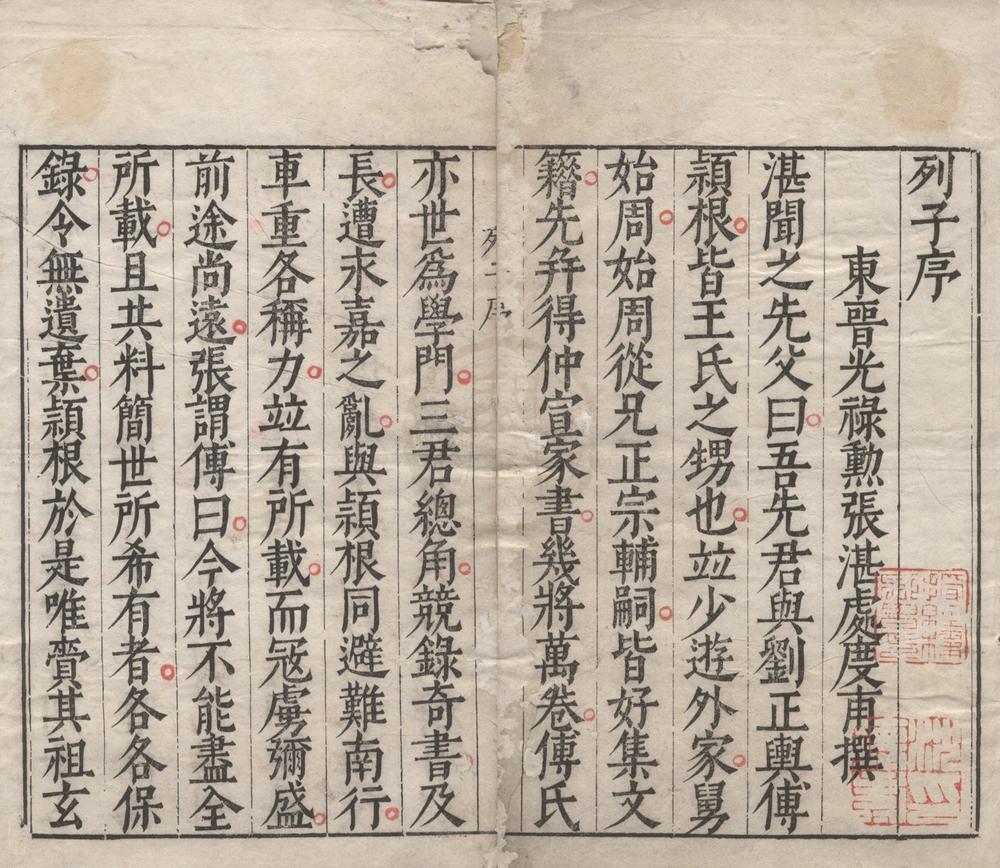 列子序
東晉光祿勲張湛處度甫撰
湛聞之先父曰吾先君與劉正輿傅
頴根皆王氏之甥也竝少遊外家舅
始周始周從兄正宗輔嗣皆好集文
籍先幷得仲宣家書幾將萬卷傅氏
列子序
亦世爲學門三君總角競錄奇書及
長遭永嘉之亂與頴根同避難南行
車重各稱力竝有所載而冦虜彌盛
前途尚遠張謂傅曰今將不能盡全
所載且共料簡世所希有者各各保
錄令無遺棄頴根於是唯賷其祖玄